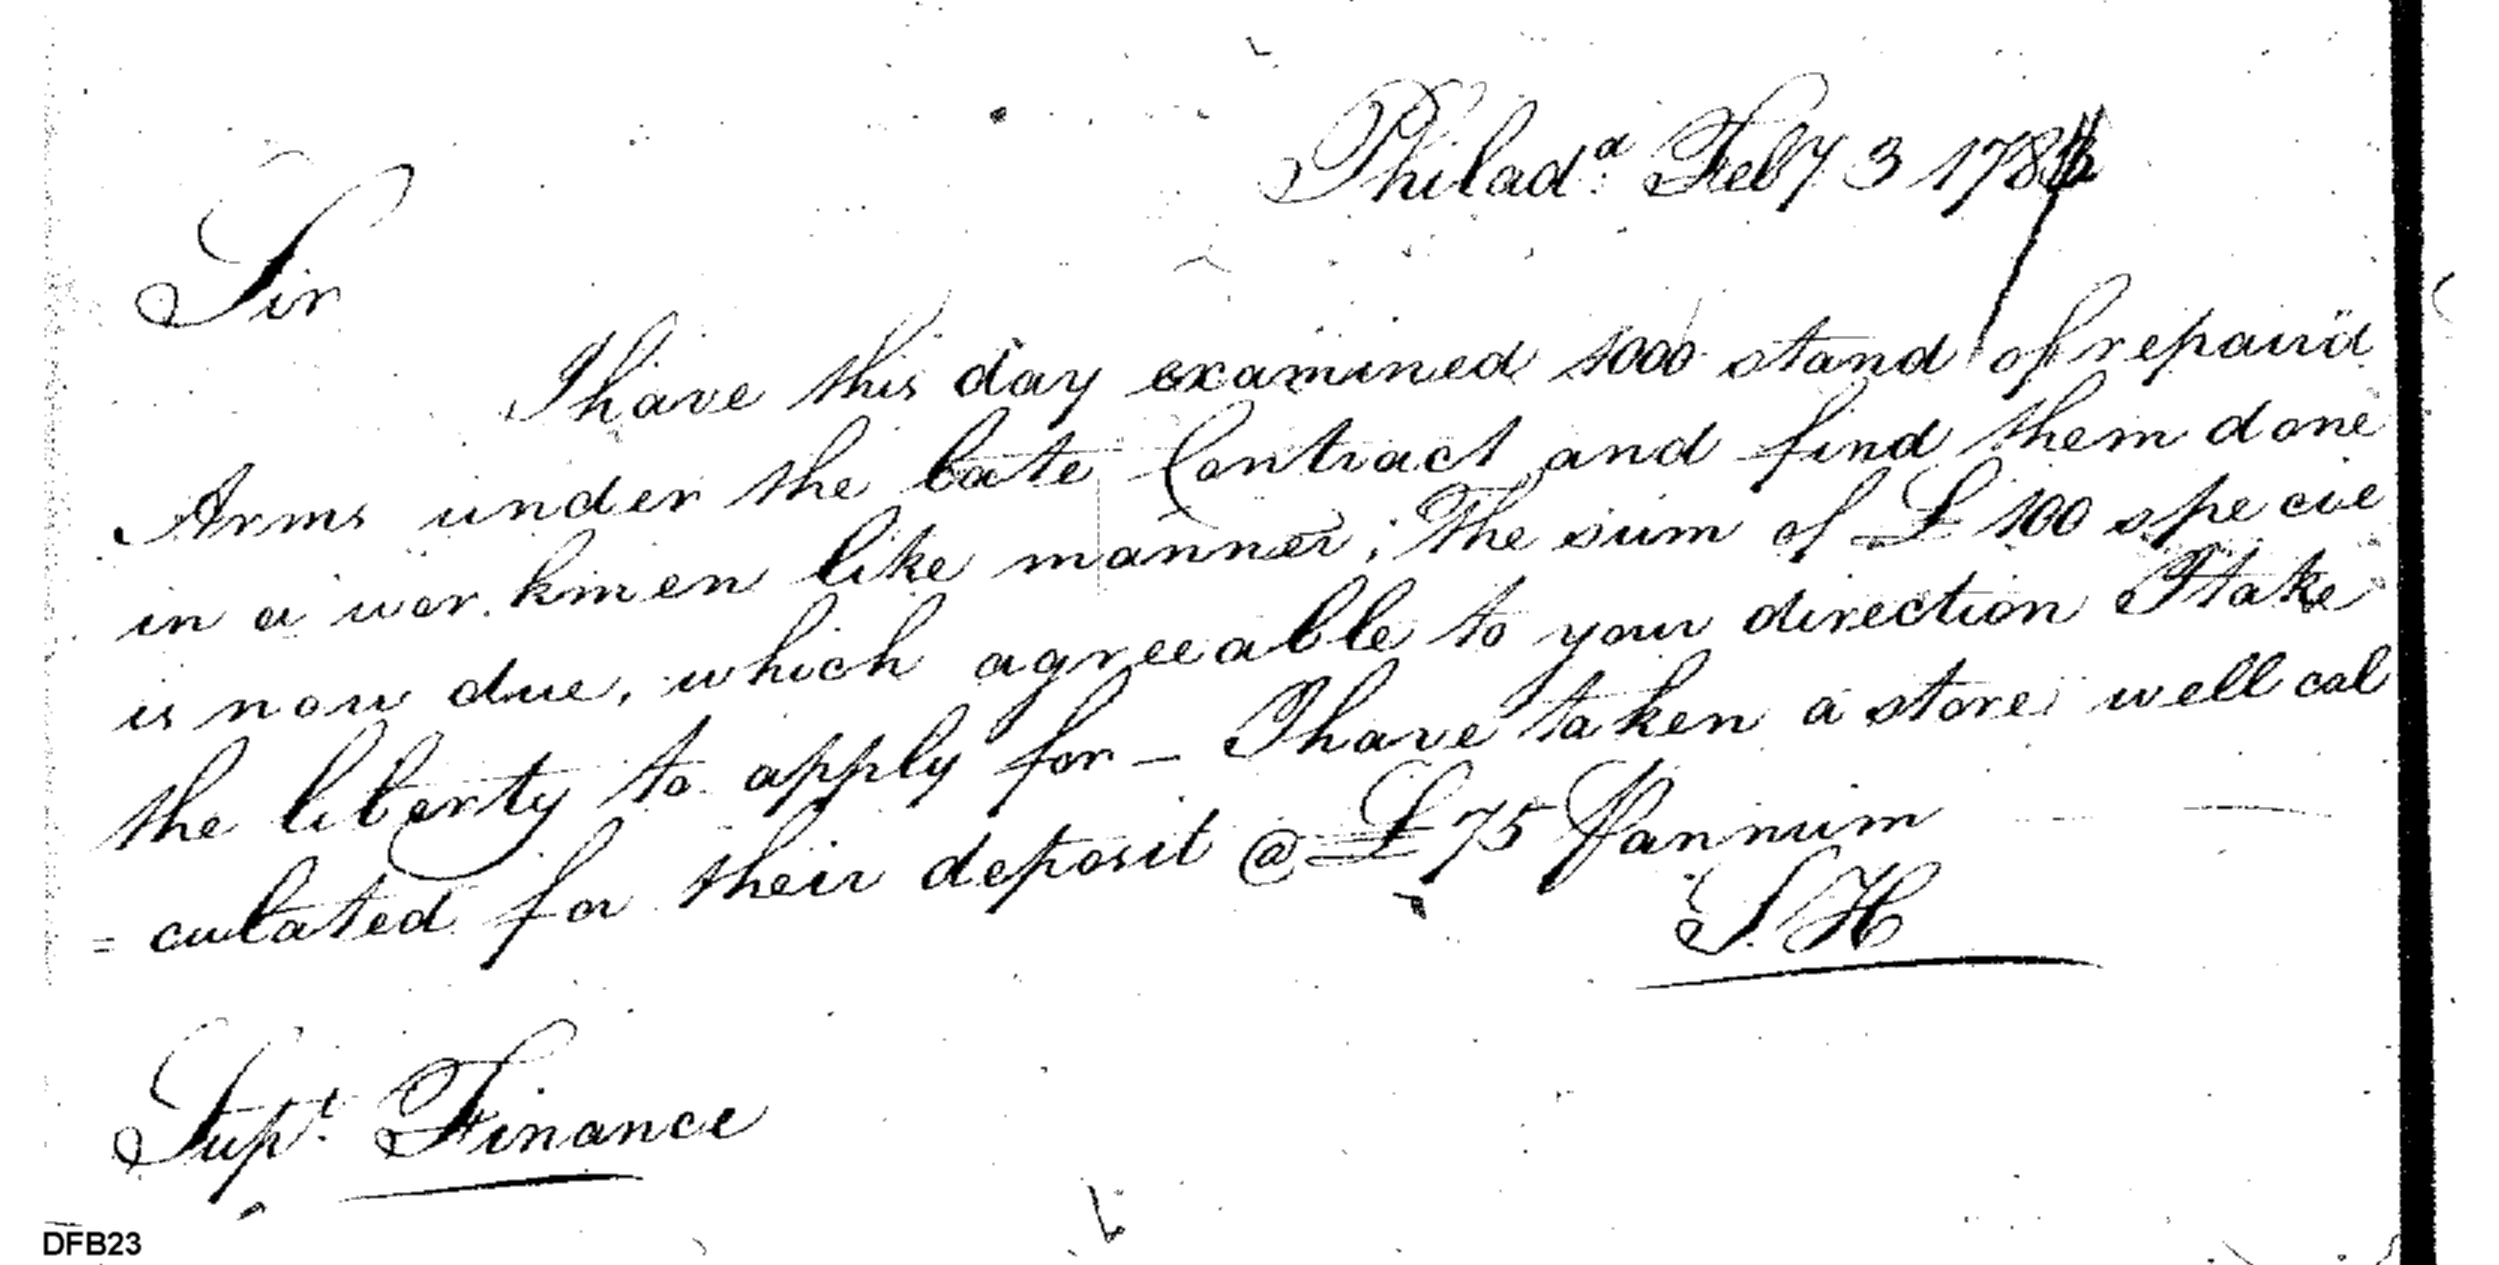 Philad.ª Feby 3 178
Sir
I have this day examined 1000 stand of repair'd
Arms under the late Contract and find them done
in a workmen like manner; The sum of £ 100 specie
is now due, which agreeable to your direction I take
the liberty to apply for – I have taken a store well cal
= culated for their deposit @ £ 75 ⅌ annum
S. H
Sup.t Finance
DFB23